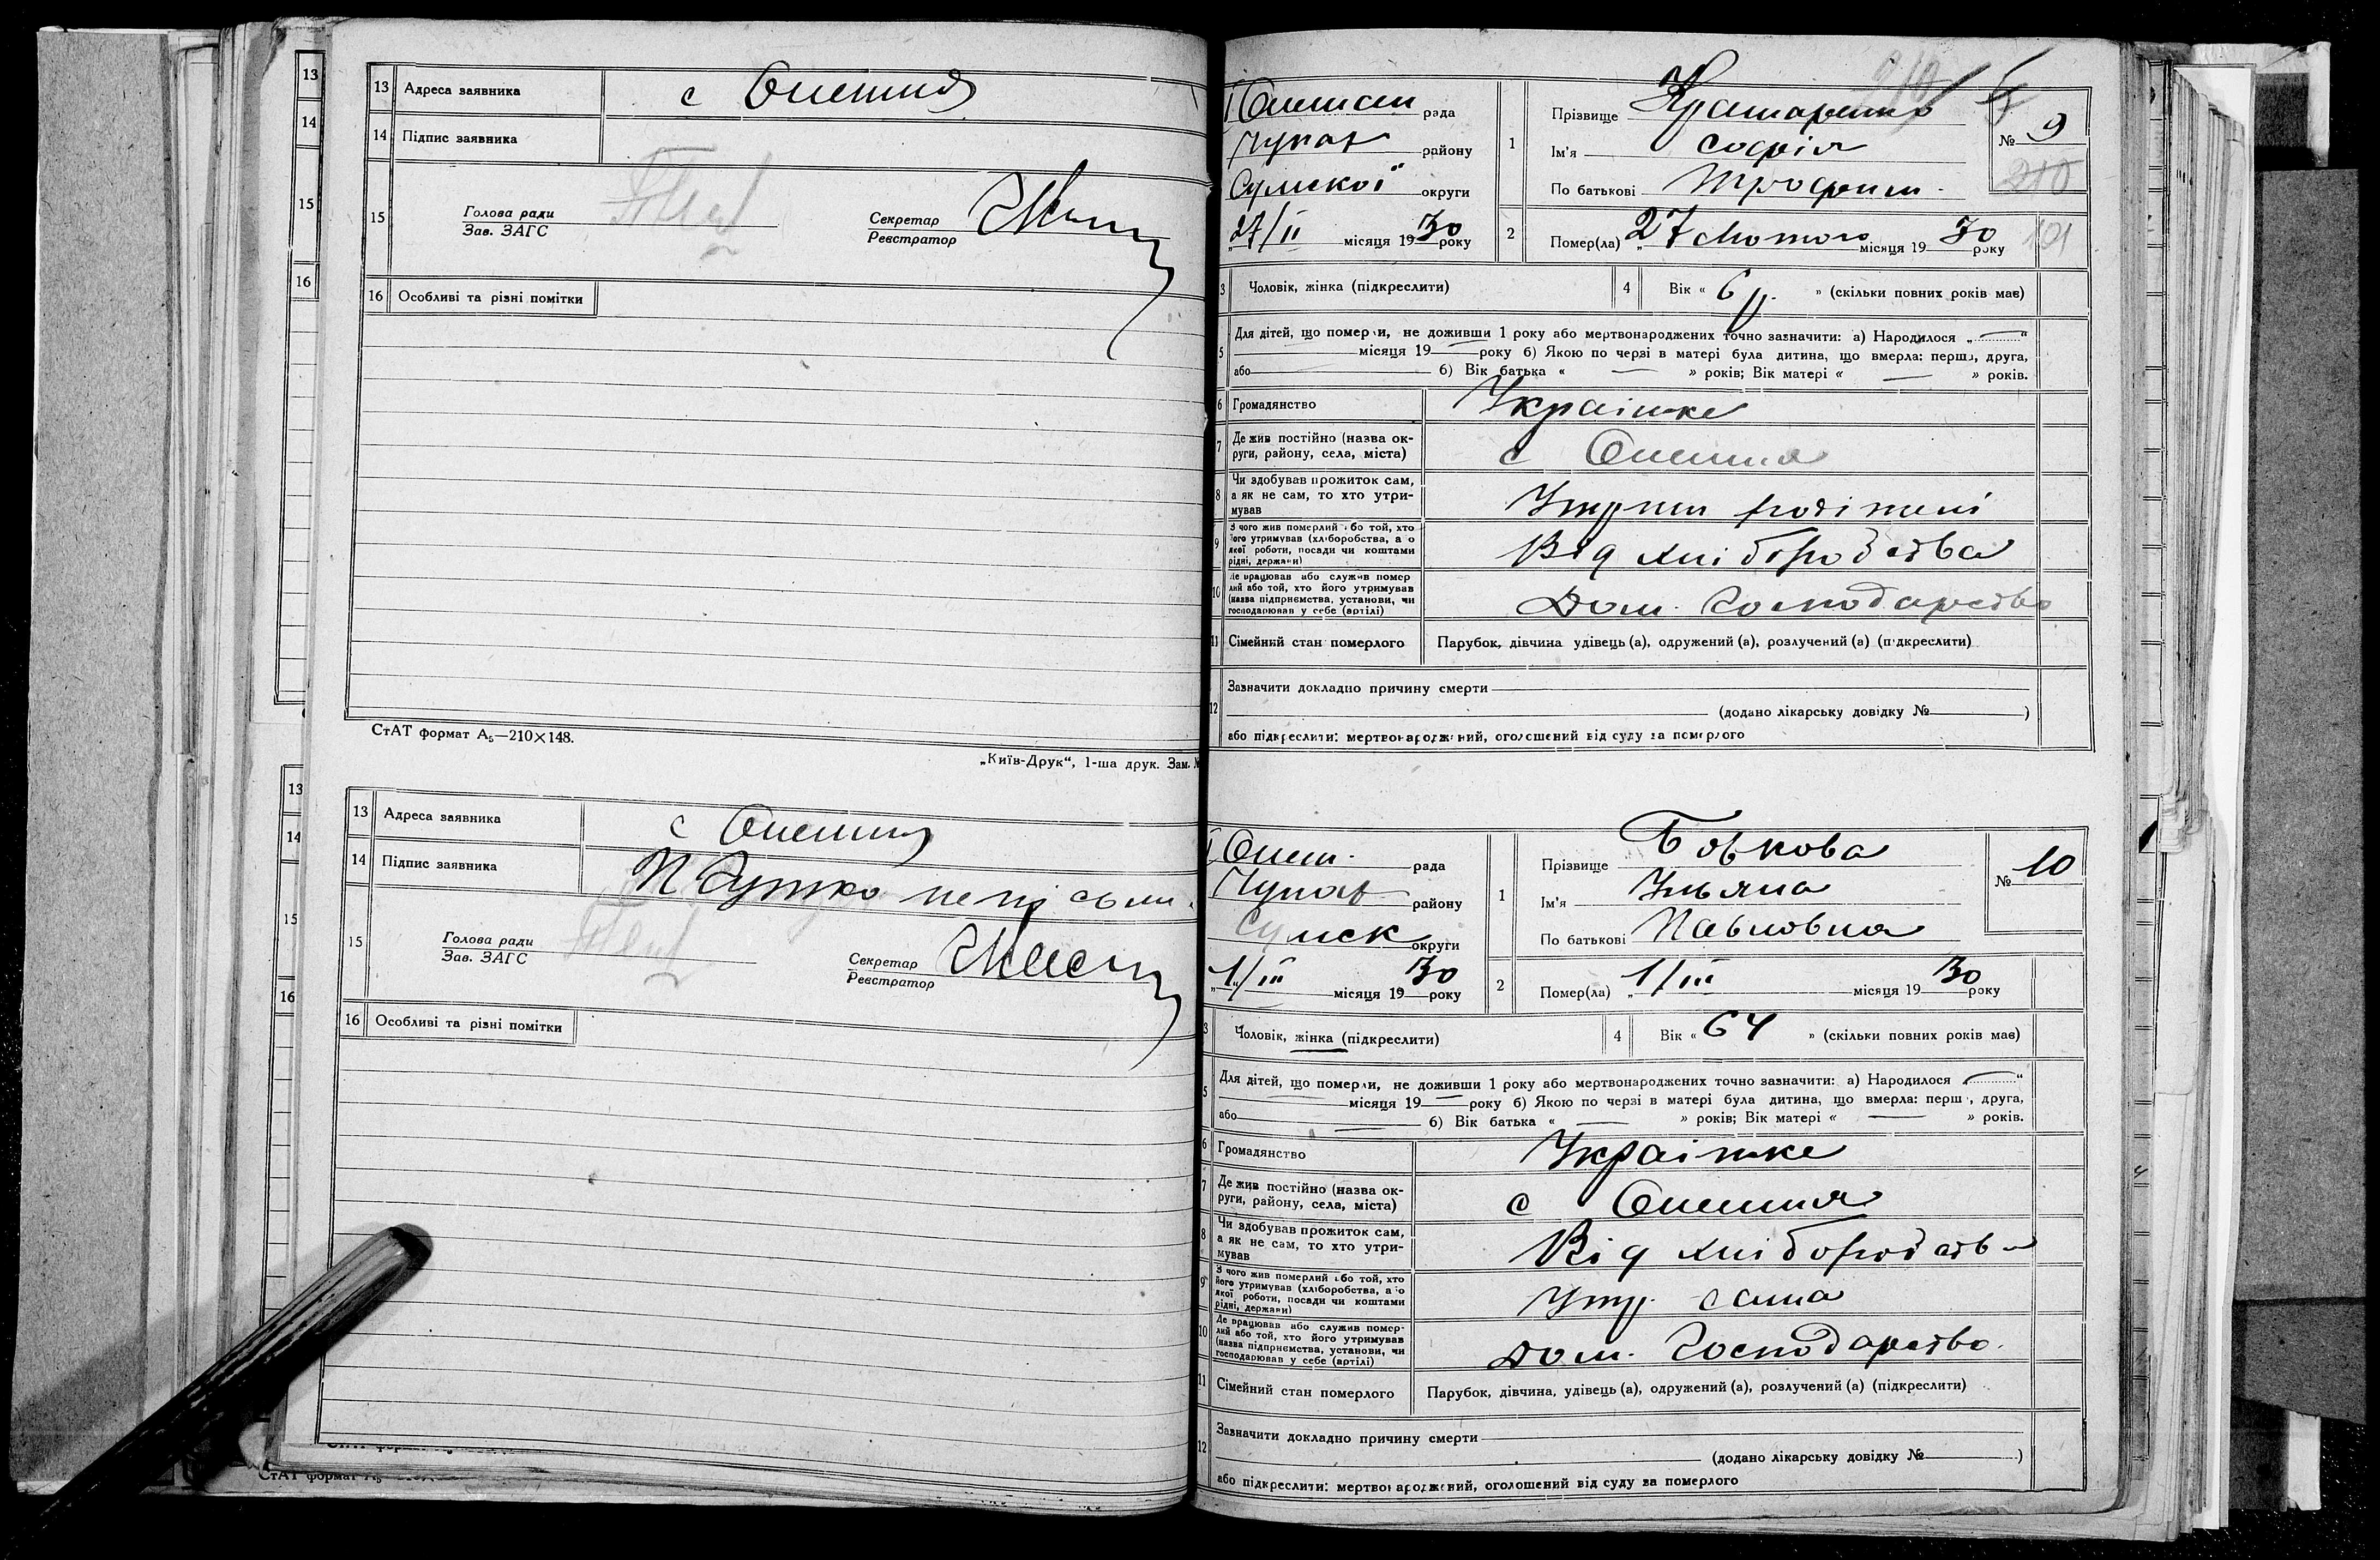 13 Адреса заявника с Олешня
14 Підпис заявника
15 Голова ради
Зав. ЗАГС
Секретар
Реєстратор
16 Особливі та різні помітки
СтАТ формат А5—210×148.
„Київ-Друк“, 1-ша друк. Зам. №
13 Адреса заявника с Олешня
14 Підпис заявника
15 Голова ради
Зав. ЗАГС
Секретар
Реєстратор
16 Особливі та різні помітки
рада
Чупах району
Сумської округи
„27/II місяця 1930 року
1 Прізвище
Ім'я Софія
По батькові Трофим.
№ 9
210
2 Помер(ла) „27 Лютого місяця 1930 року
101
3 Чоловік, жінка (підкреслити)
4 Вік « 6 р. » (скільки повних років має)
5 Для дітей, що померли, не доживши 1 року або мертвонароджених точно зазначити: а) Народилося „ — “
місяця 19 — року б) Якою по черзі в матері була дитина, що вмерла: перша, друга,
або — б) Вік батька « — » років; Вік матері « — » років.
6 Громадянство Украінське
7 Де жив постійно (назва ок-
руги, району, села, міста) с Олешня
8 Чи здобував прожиток сам,
а як не сам, то хто утри-
мував
9 З чого жив померлий або той, хто
його утримував (хліборобства, а о
якої роботи, посади чи коштами
рідні, держави) Від хліборобства
10 Де працював або служив помер
лий або той, хто його утримував
(назва підприємства, установи, чи
господарював у себе (артілі) Дом. Господарство
11 Сімейний стан померлого Парубок, дівчина удівець (а), одружений (а), розлучений (а) (підкреслити)
12 Зазначити докладно причину смерти
(додано лікарську довідку № )
або підкреслити: мертвонароджений, оголошений від суду за померлого
Олеш. рада
Чупах району
Сумск округи
„1“/III місяця 1930 року
1 Прізвище Бовкова
Ім'я Ульяна
По батькові Павловна
№ 10
2 Помер(ла) „1/III місяця 1930 року
3 Чоловік, жінка (підкреслити)
4 Вік « 64 » (скільки повних років має)
5 Для дітей, що померли, не доживши 1 року або мертвонароджених точно зазначити: а) Народилося „ — “
місяця 19 — року б) Якою по черзі в матері була дитина, що вмерла: перш , друга,
або — б) Вік батька « — » років; Вік матері « — » років.
6 Громадянство Украінське
7 Де жив постійно (назва ок-
руги, району, села, міста) с Олешня
8 Чи здобував прожиток сам,
а як не сам, то хто утри-
мував Від хліборобства
9 З чого жив померлий або той, хто
його утримував (хліборобства, а о
якої роботи, посади чи коштами
рідні, держави) Утр. сама
10 Де працював або служив помер-
лий або той, хто його утримував
(назва підприємства, установи, чи
господарював у себе (артілі) Дом. Господарство.
11 Сімейний стан померлого Парубок, дівчина, удівець (а), одружений (а), розлучений (а) (підкреслити)
12 Зазначити докладно причину смерти
(додано лікарську довідку № )
або підкреслити: мертвонароджений, оголошений від суду за померлого